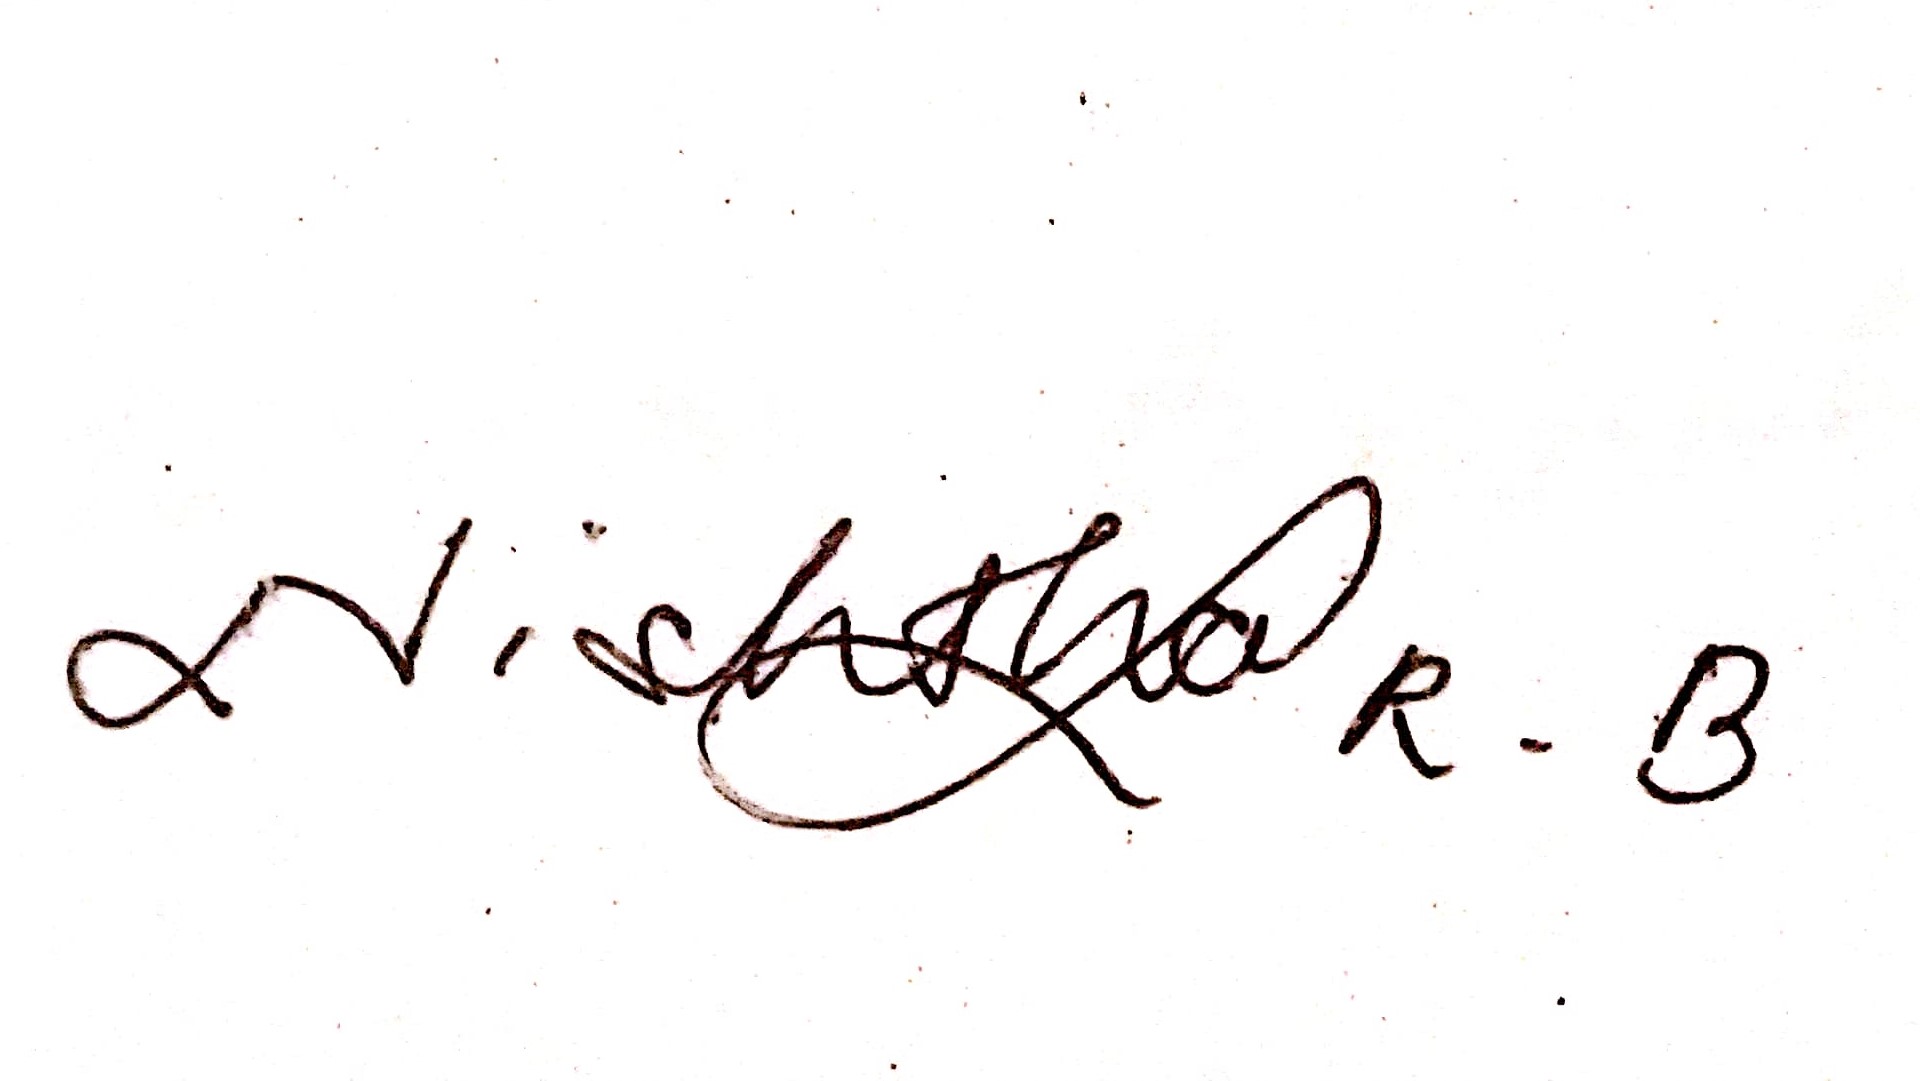 Nischitha R - B